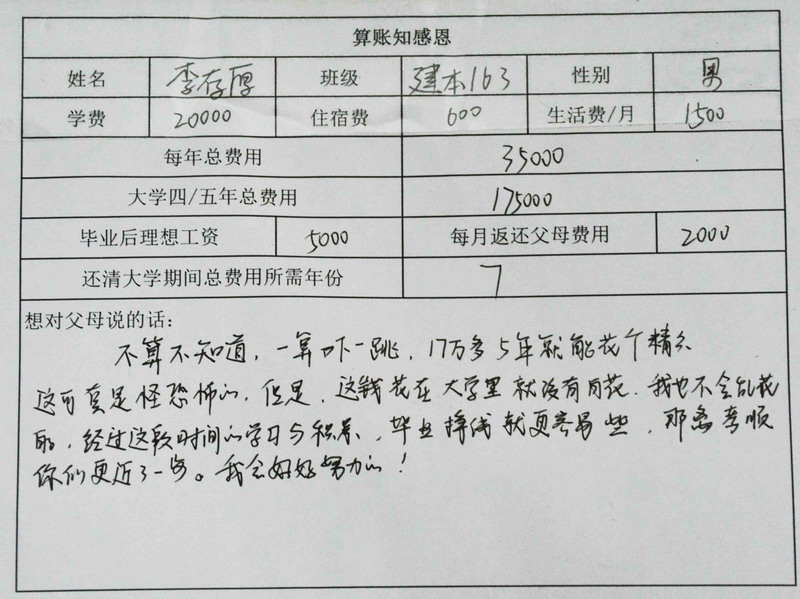 算账知感恩
姓名 李存厚 班级 建本163 性别 男
学费 20000 住宿费 600 生活费/月 1500
每年总费用 35000
大学四/五年总费用 175000
毕业后理想工资 5000 每月返还父母费用 2000
还清大学期间总费用所需年份 7
想对父母说的话:
不算不知道,一算吓一跳,17万多5年就能花个精
这可真是怪恐怖的,但是,这钱花在大学里就没有白花,我也不会乱花
的,经过这段时间的学习与积累,毕业挣钱就更容易些,那离孝顺
你们更近了一步。我会好好努力的!